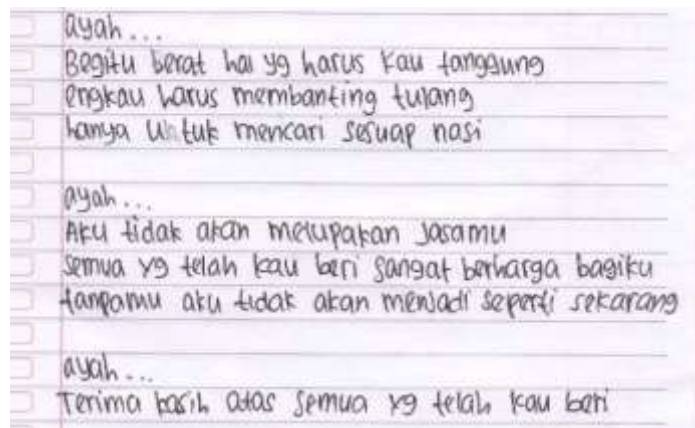 ayah...
Begitu berat hal yg harus kau tanggung
engkau harus membanting tulang
hanya untuk mencari sesuap nasi
ayah...
Aku tidak akan melupakan jasamu
semua yg telah kau beri sangat berharga bagiku
tanpamu aku tidak akan menjadi seperti sekarang
ayah...
Terima kasih atas semua yg telah kau beri